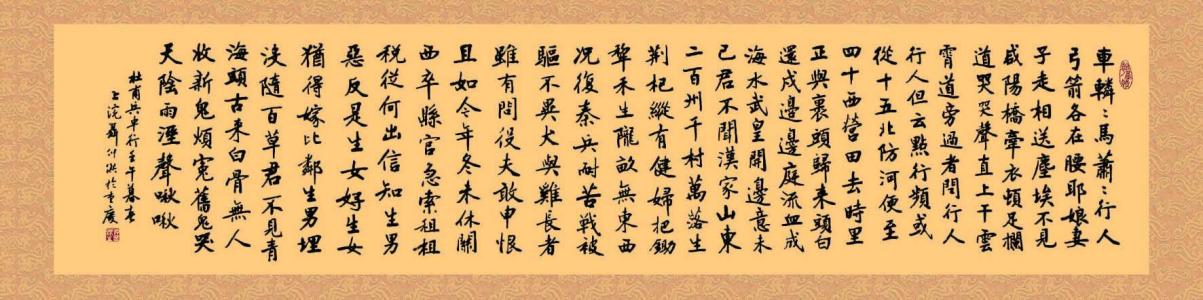 車轔:馬蕭:行人
弓箭各在腰耶娘妻
子走相送塵埃不見
咸陽橋牽衣頓足攔
道哭哭聲直上干雲
霄道旁過者問行人
行人但云點行頻或
從十五北防河便至
四十西營田去時里
正與裏頭歸来頭白
還戍邊邊庭流血成
海水武皇開邊意未
已君不聞漢家山東
二百州千村萬落生
荆杞縱有健婦把鋤
犂禾生隴畝無東西
况復秦兵耐苦戰被
驅不異犬與雞長者
雖有問役夫敢申恨
且如今年冬未休關
西卒縣官急索租租
税從何出信知生男
惡反是生女好生女
猶得嫁比鄰生男埋
沒隨百草君不見青
海頭古来白骨無人
收新鬼煩冤舊鬼哭
天陰雨溼聲啾啾
杜甫兵車行壬午暮春
上浣聶洪於重慶